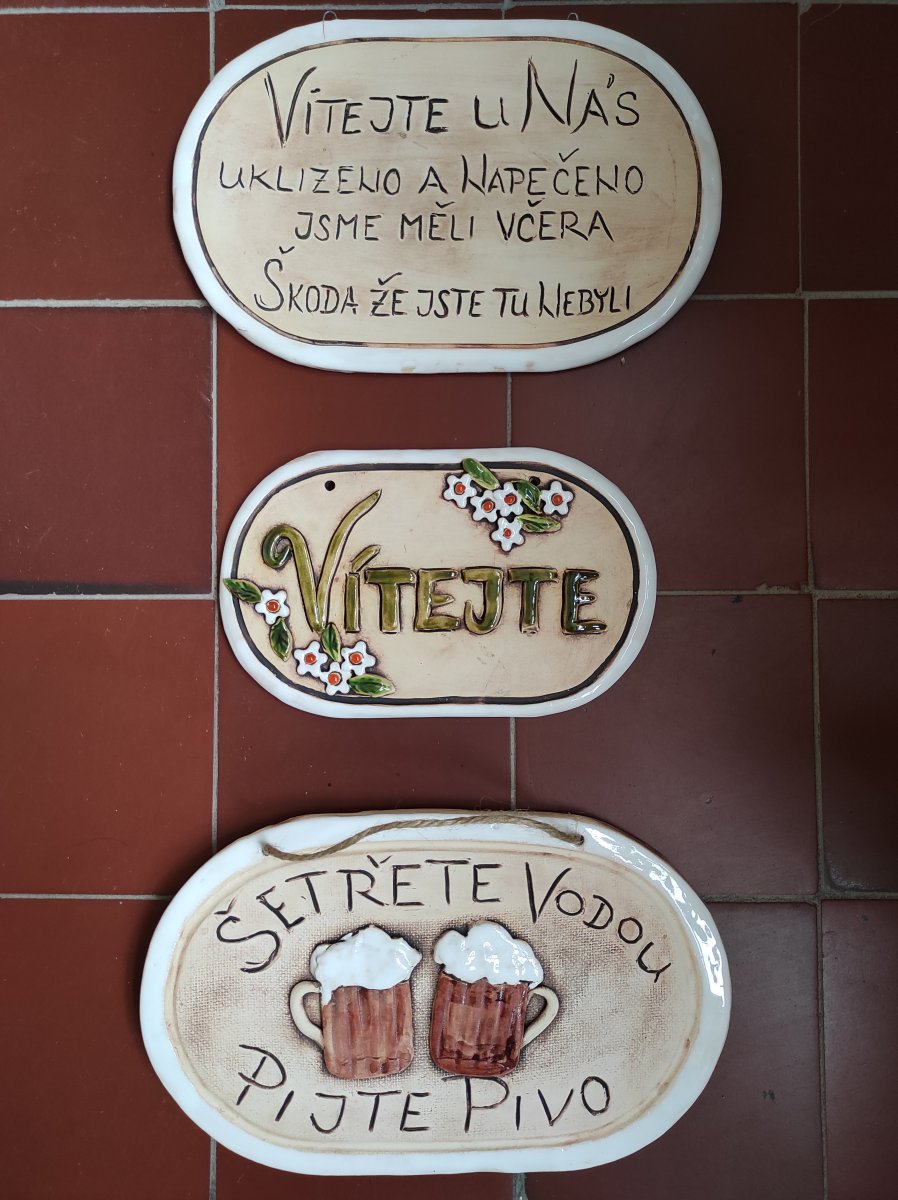 VÍTEJTE U NÁS
UKLIZENO A NAPEČENO
JSME MĚLI VČERA
ŠKODA ŽE JSTE TU NEBYLI
VÍTEJTE
ŠETŘETE VODOU
PIJTE PIVO